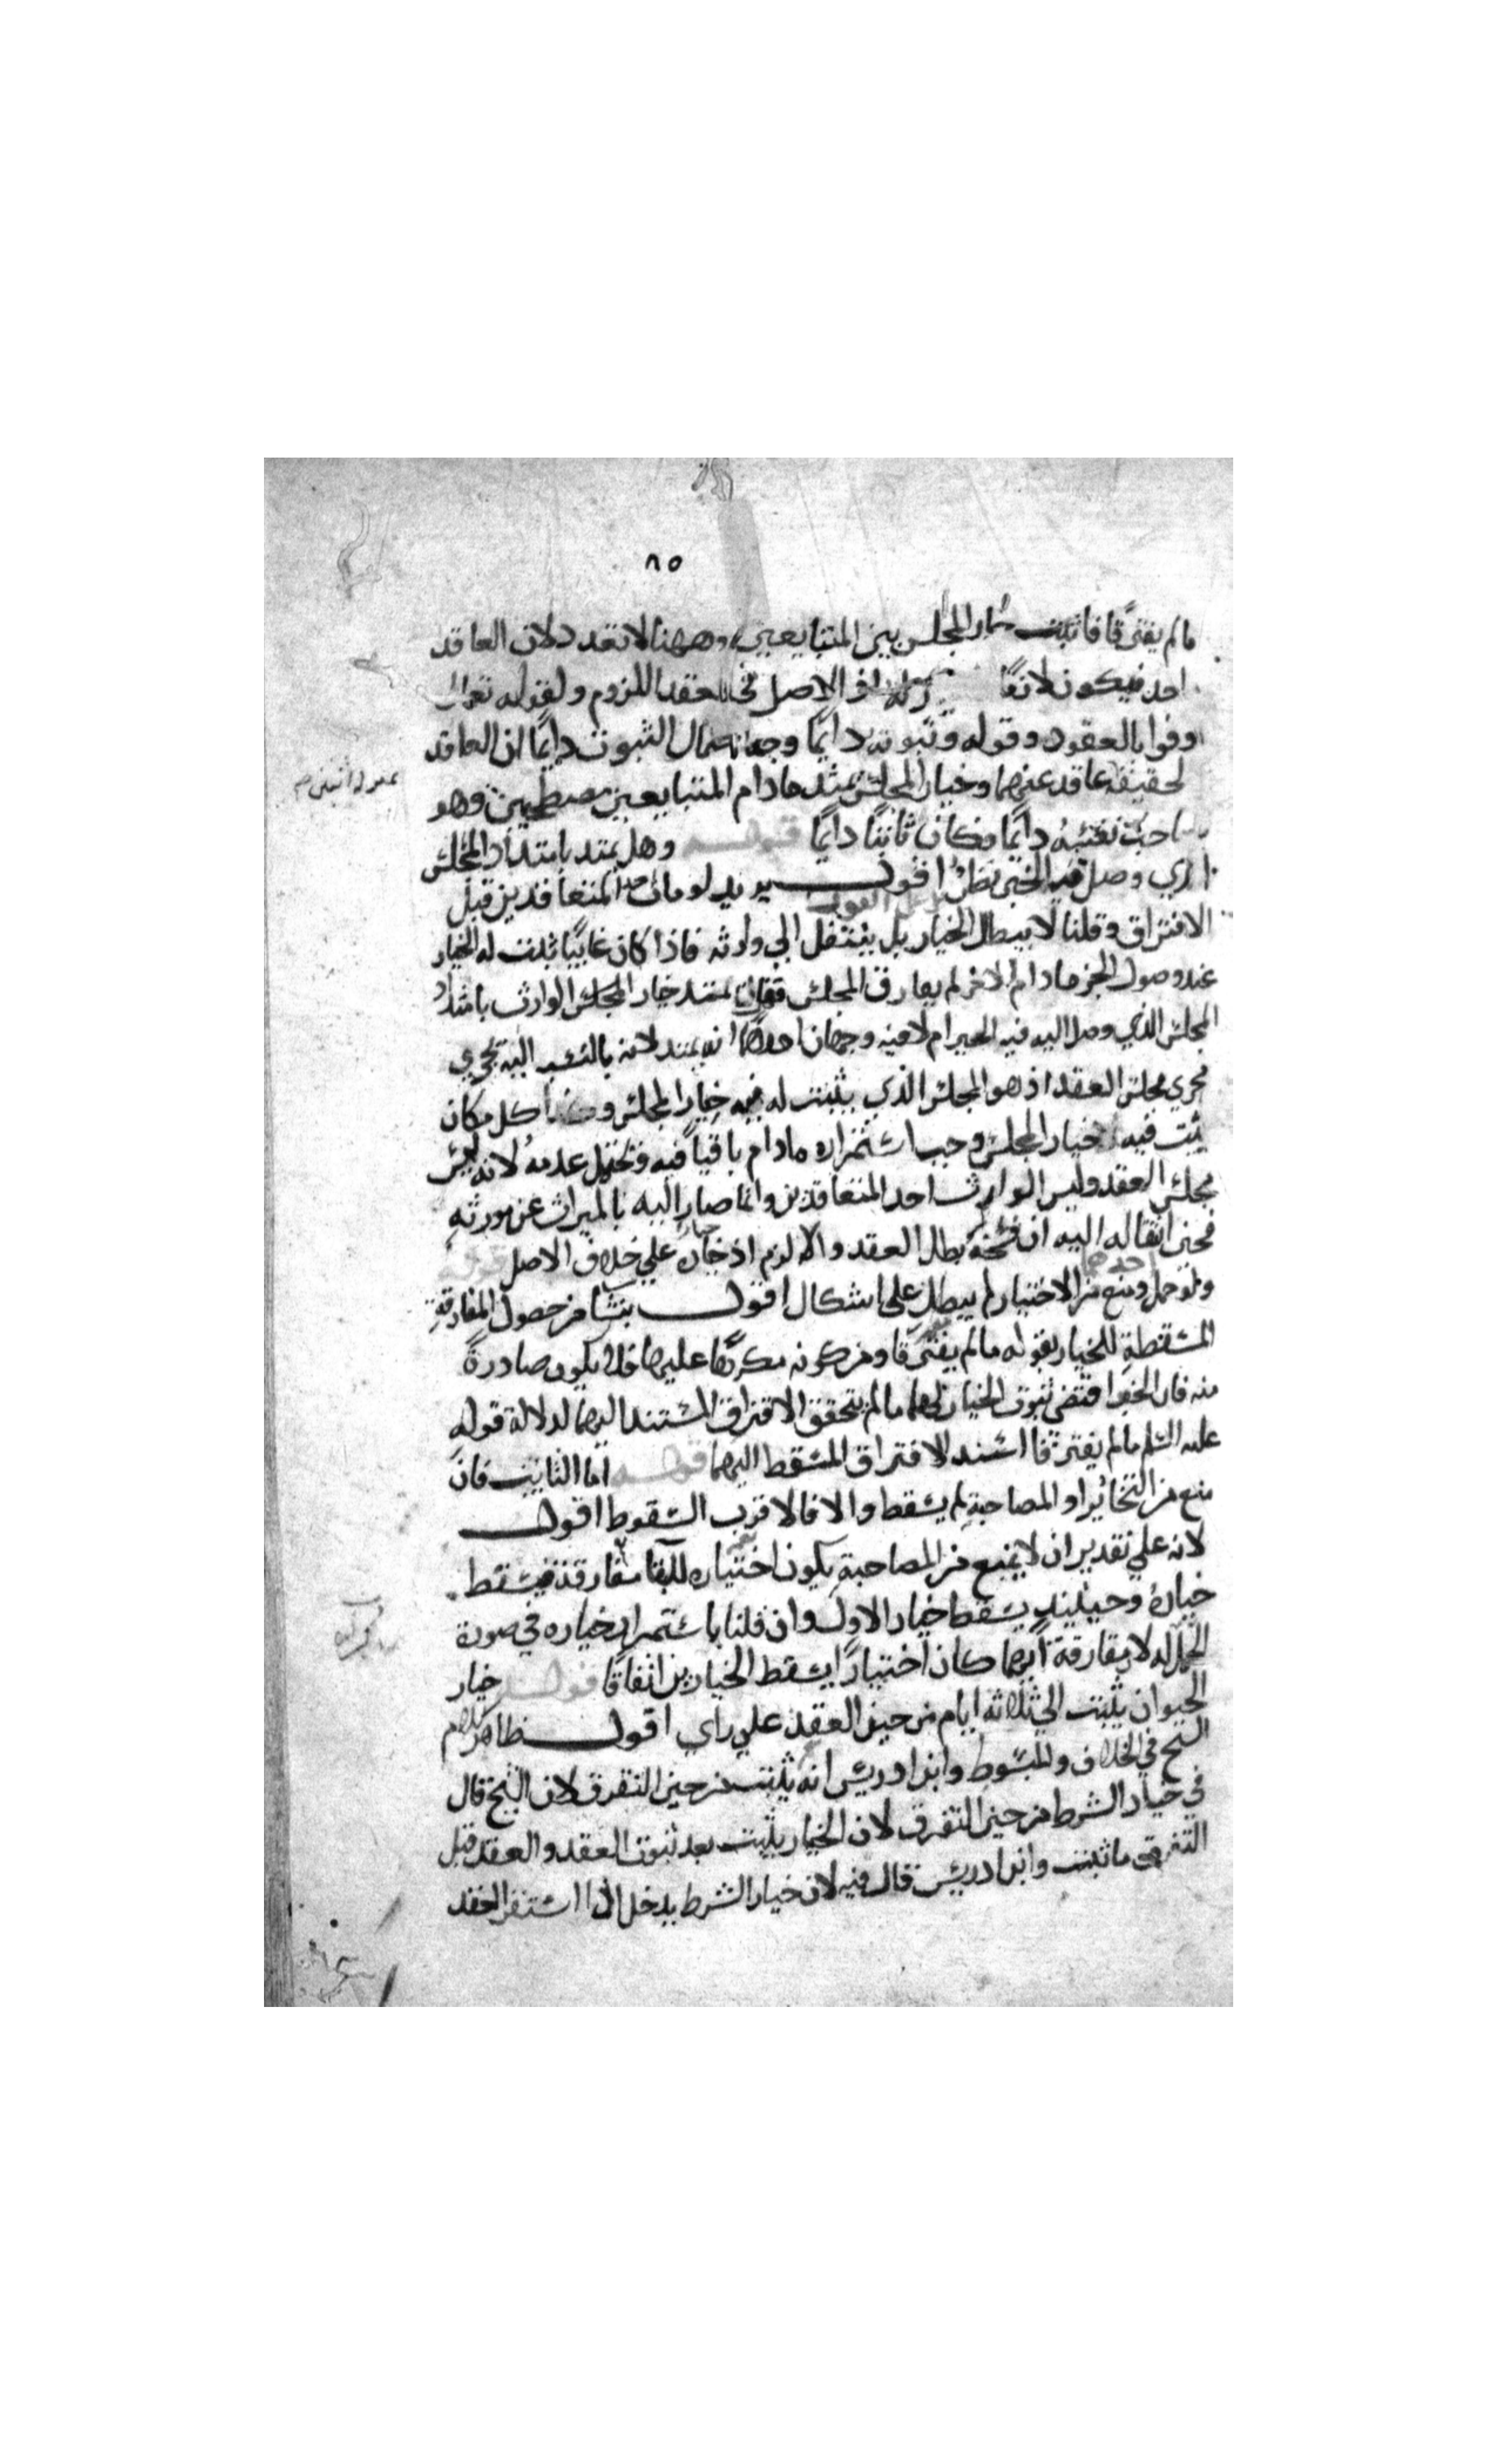 ٨٥
مالم يفترقا فاثبت خيار المجلس بين المتبايعين وههنا لا تعدد لان العاقد
احد فيكون لازمًا ولان الاصل في العقد اللزوم ولقوله تعالى
اوفوا بالعقود وقوله وثبوته دائمًا وجه احتمال الثبوت دائمًا ان العاقد
لحقيقة عاقد عنهما وخيار المجلس يمتد مادام المتبايعين مصطحبين وهو
صاحب نفسه دائمًا فكان ثابتًا دائمًا قوله وهل يمتد بامتداد المجلس
الذي وصل فيه الخبر نظر اقول يريد لو مات احد المتعاقدين قبل
الافتراق وقلنا لا يبطل الخيار بل ينتقل الى وارثه فاذا كان غايبًا ثبت له الخيار
عند وصول الخبر مادام الاخر لم يفارق المجلس فهل يمتد خيار المجلس الوارث بامتداد
المجلس الذي وصل اليه فيه الخبر ام لا فيه وجهان احدهما انه يمتد لانه بالنسبه اليه يجري
مجري مجلس العقد اذ هو المجلس الذي يثبت له فيه خيار المجلس و كل مكان
يثبت فيه خيار المجلس وجب استمراره مادام باقيًا فيه ويحتمل عدمه لانه ليس
مجلس العقد وليس الوارث احد المتعاقدين وانما صار اليه بالميراث عن مورثه
فحين انتقاله اليه ان فسخه بطل العقد والا لزم اذ خياره علي خلاف الاصل قوله
ولو حمل احدهما ومنع من الاختيار لم يبطل علي اشكال اقول ينشا من حصول المفارقة
المسقطة للخيار بقوله مالم يفترقا ومن كونه مكرهًا عليها فلا يكون صادرة
منه فان الخبر اقتضي ثبوت الخيار لهما مالم يتحقق الافتراق المستند اليهما لدلالة قوله
عليه السلم مالم يفترقا اسند الافتراق المسقط اليهما قوله اما الثابت فان
منع من التخاير او المصاحبة لم يسقط والا فالاقرب السقوط اقول
لانه علي تقدير ان لا يمنع من المصاحبة يكون اختياره للبقا مفارقة فيسقط
خياره وحينيذ يسقط خيار الاول وان قلنا باستمرار خياره في صورة
الحمل له لا مفارقة ايهما كان اختيارًا يسقط الخيارين اتفاقًا قوله خيار
الحيوان يثبت الي ثلاثه ايام من حين العقد علي راي اقول ظاهر كلام
الشيخ في الخلاف والمبسوط وابن ادريس انه يثبت من حين التفرق لان الشيخ قال
في خيار الشرط من حين التفرق لان الخيار يثبت بعد ثبوت العقد والعقد قبل
التفرق ما ثبت وابن ادريس قال فيه لان خيار الشرط يدخل اذا استقر العقد